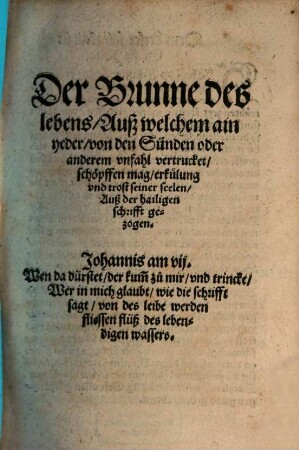 Der Brunne des
lebens/Auß welchem ain
yeder/von den Sünden oder
anderem vnfahl vertrucket/
schöpffen mag/erkülung
vnd trost seiner seelen/
Auß der hailigen
schrifft ge-
zogen.
Johannis am vij.
Wen da dürstet/der kum̃ zů mir/vnd trincke/
Wer in mich glaubt/wie die schrifft
sagt/von des leibe werden
fliessen flüß des leben-
digen wassers.